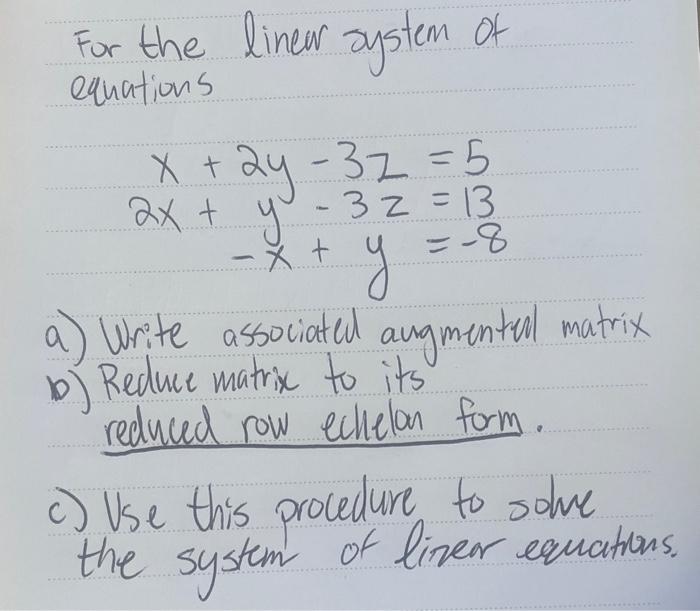 For the linear system of
equations
x + 2y - 3z = 5
2x + y - 3z = 13
-x + y = -8
a) Write associated augmented matrix
b) Reduce matrix to its
reduced row echelon form.
c) Use this procedure to solve
the system of linear equations.